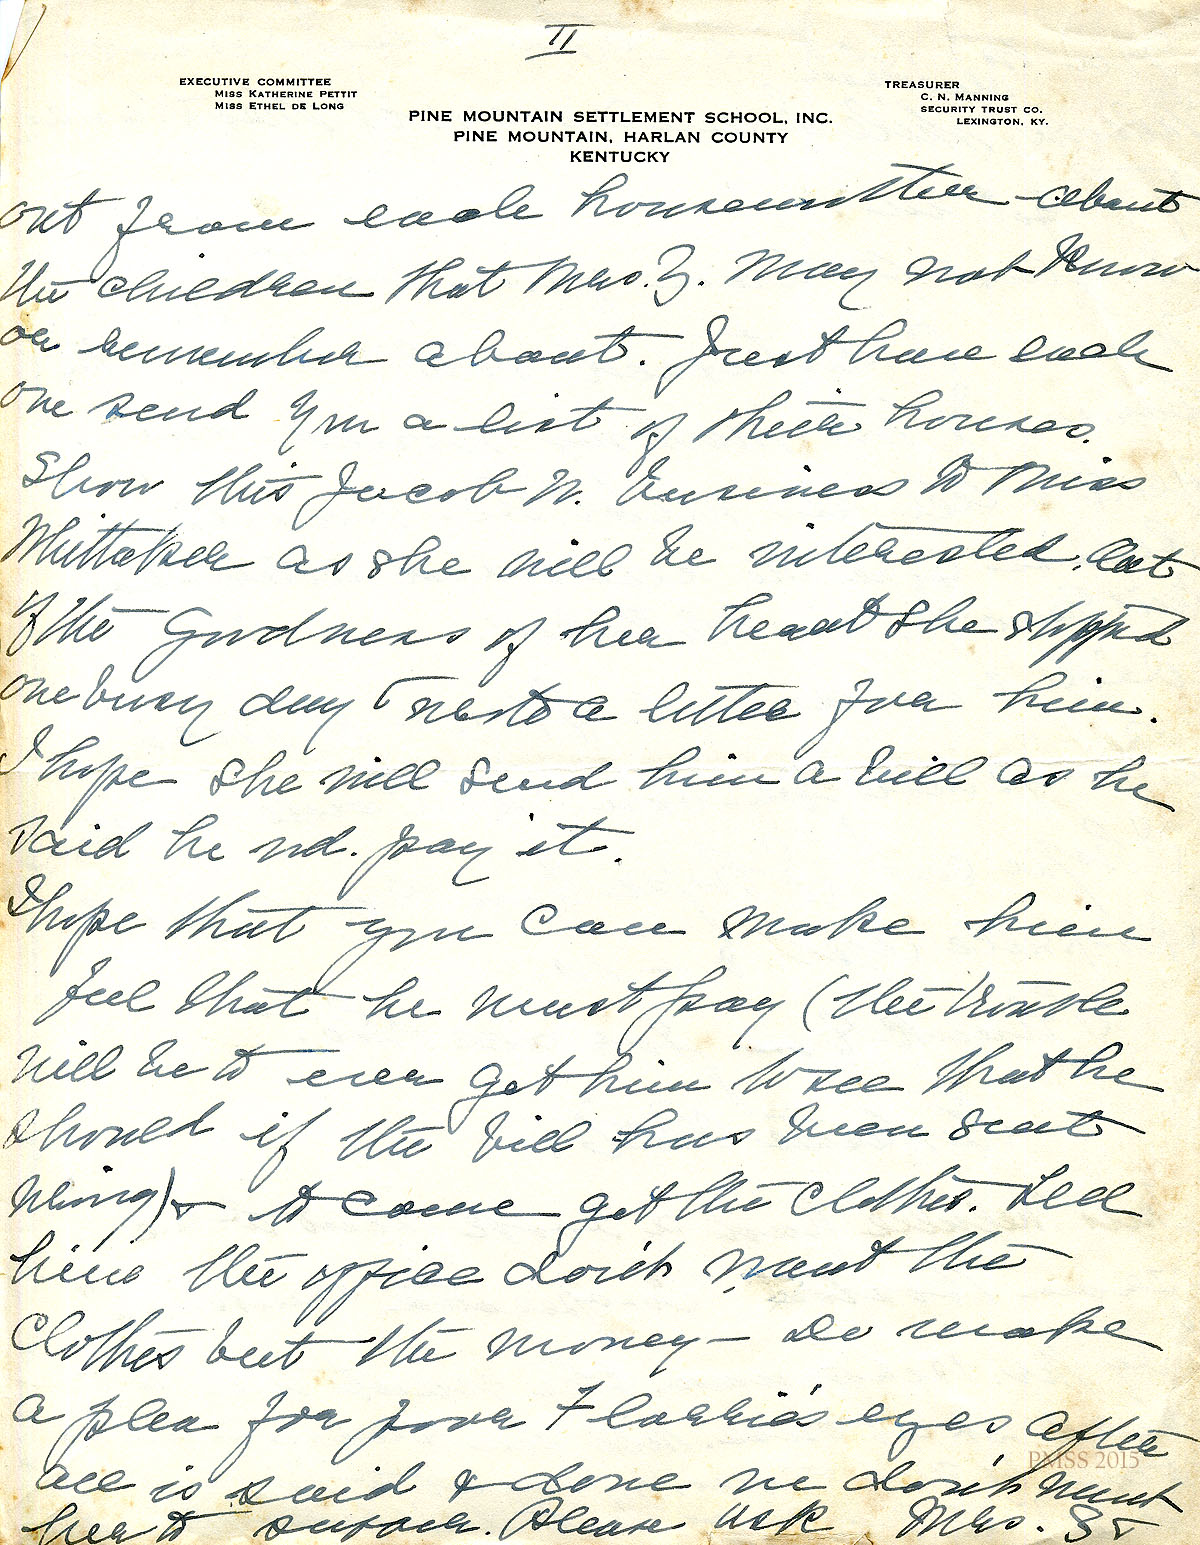 II
EXECUTIVE COMMITTEE
MISS KATHERINE PETTIT
MISS ETHEL DE LONG
TREASURER
C. N. MANNING
SECURITY TRUST CO.
LEXINGTON, KY.
PINE MOUNTAIN SETTLEMENT SCHOOL, INC.
PINE MOUNTAIN, HARLAN COUNTY
KENTUCKY
out from each housemother about
the children that Mrs. Z. may not know
or remember about. Just have each
one send you a list of their houses.
Show this Jacob N. business to Miss
Whittaker as she will be interested. Out
of the goodness of her heart she stopped
one busy day & wrote a letter for him.
I hope she will send him a bill as he
said he wd. pay it.
I hope that you can make him
feel that he must pay (the trouble
will be to ever get him to see that he
should if the bill has been sent
wrong) & to come get the clothes. Tell
him the office don't want the
clothes but the money - Do make
a plea for poor Florrie's eyes after
all is said & done we don't want
her to suffer. Please ask Mrs. Z &
PMSS 2015